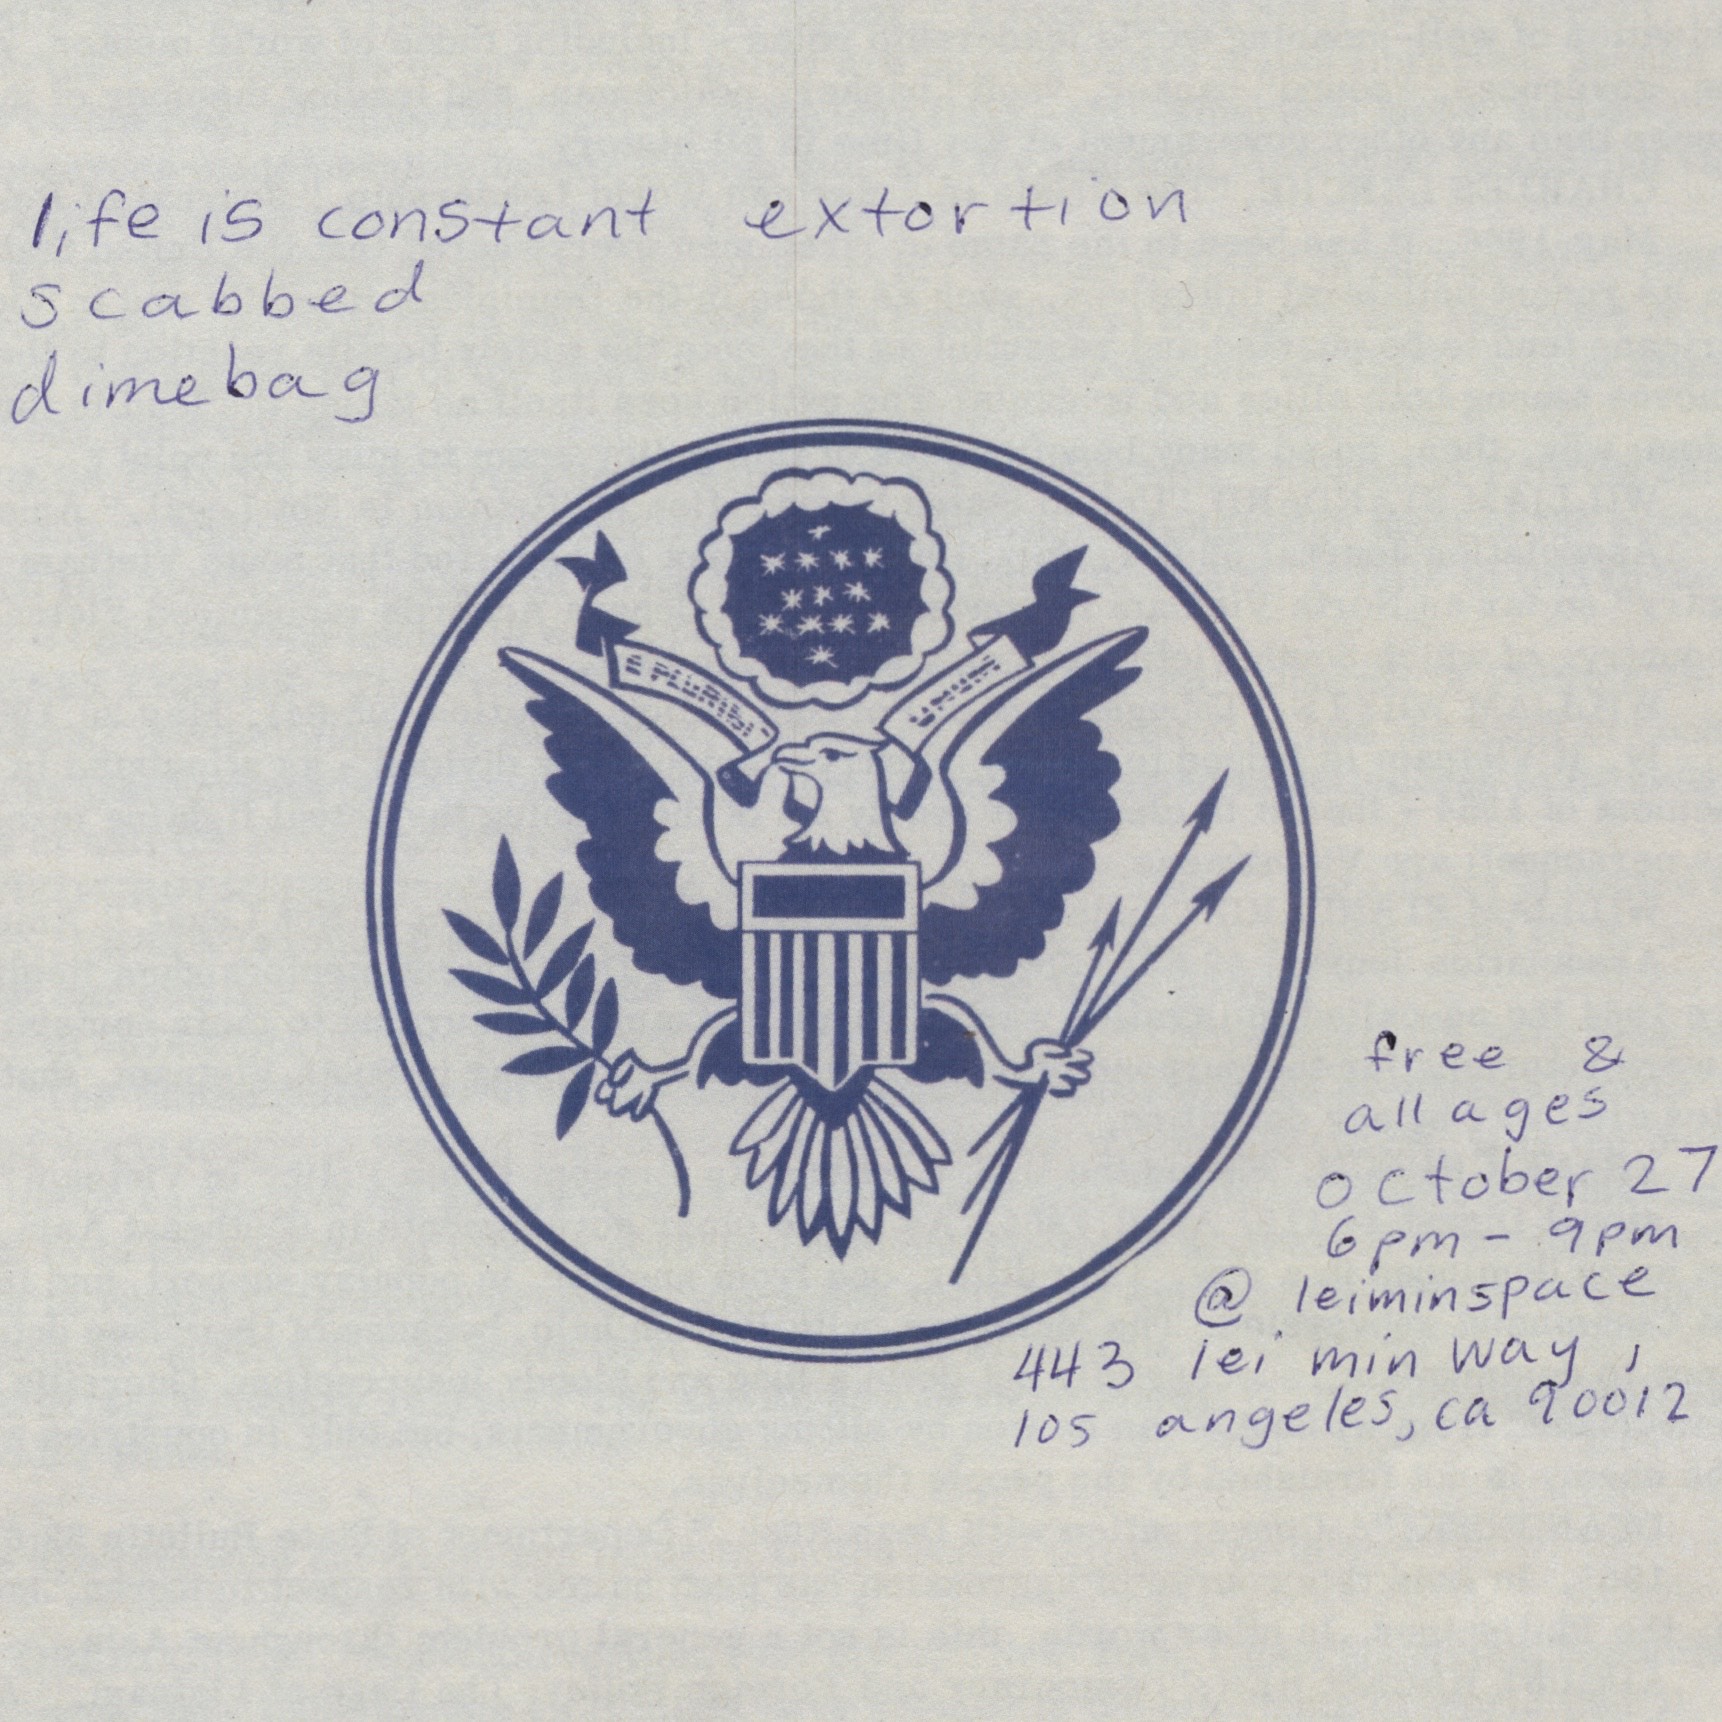 life is constant extortion
scabbed
dimebag
E PLURIBUS
UNUM
free &
all ages
october 27
6pm - 9pm
@ leiminspace
443 lei min way,
los angeles, ca 90012